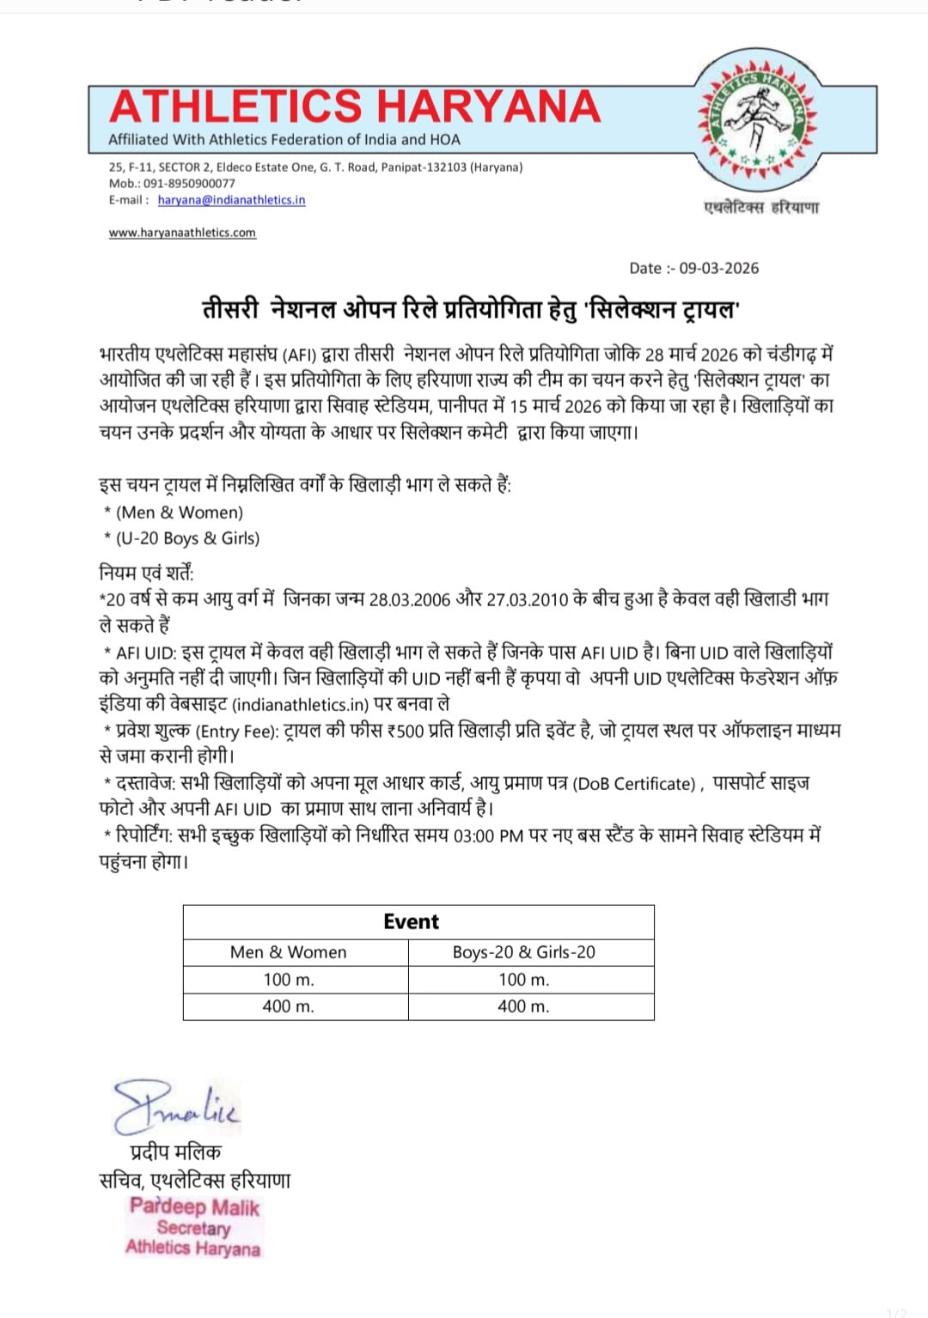 ATHLETICS HARYANA
Affiliated With Athletics Federation of India and HOA
ATHLETICS HARYANA
एथलेटिक्स हरियाणा
25, F-11, SECTOR 2, Eldeco Estate One, G. T. Road, Panipat-132103 (Haryana)
Mob.: 091-8950900077
E-mail : haryana@indianathletics.in
www.haryanaathletics.com
Date :- 09-03-2026
तीसरी नेशनल ओपन रिले प्रतियोगिता हेतु 'सिलेक्शन ट्रायल'
भारतीय एथलेटिक्स महासंघ (AFI) द्वारा तीसरी नेशनल ओपन रिले प्रतियोगिता जोकि 28 मार्च 2026 को चंडीगढ़ में
आयोजित की जा रही हैं। इस प्रतियोगिता के लिए हरियाणा राज्य की टीम का चयन करने हेतु 'सिलेक्शन ट्रायल' का
आयोजन एथलेटिक्स हरियाणा द्वारा सिवाह स्टेडियम, पानीपत में 15 मार्च 2026 को किया जा रहा है। खिलाड़ियों का
चयन उनके प्रदर्शन और योग्यता के आधार पर सिलेक्शन कमेटी द्वारा किया जाएगा।
इस चयन ट्रायल में निम्नलिखित वर्गों के खिलाड़ी भाग ले सकते हैं:
* (Men & Women)
* (U-20 Boys & Girls)
नियम एवं शर्तें:
*20 वर्ष से कम आयु वर्ग में जिनका जन्म 28.03.2006 और 27.03.2010 के बीच हुआ है केवल वही खिलाडी भाग
ले सकते हैं
* AFI UID: इस ट्रायल में केवल वही खिलाड़ी भाग ले सकते हैं जिनके पास AFI UID है। बिना UID वाले खिलाड़ियों
को अनुमति नहीं दी जाएगी। जिन खिलाड़ियों की UID नहीं बनी हैं कृपया वो अपनी UID एथलेटिक्स फेडरेशन ऑफ़
इंडिया की वेबसाइट (indianathletics.in) पर बनवा ले
* प्रवेश शुल्क (Entry Fee): ट्रायल की फीस ₹500 प्रति खिलाड़ी प्रति इवेंट है, जो ट्रायल स्थल पर ऑफलाइन माध्यम
से जमा करानी होगी।
* दस्तावेज: सभी खिलाड़ियों को अपना मूल आधार कार्ड, आयु प्रमाण पत्र (DoB Certificate) , पासपोर्ट साइज
फोटो और अपनी AFI UID का प्रमाण साथ लाना अनिवार्य है।
* रिपोर्टिंग: सभी इच्छुक खिलाड़ियों को निर्धारित समय 03:00 PM पर नए बस स्टैंड के सामने सिवाह स्टेडियम में
पहुंचना होगा।
Event
Men & Women Boys-20 & Girls-20
100 m. 100 m.
400 m. 400 m.
Pmalik
प्रदीप मलिक
सचिव, एथलेटिक्स हरियाणा
Pardeep Malik
Secretary
Athletics Haryana
1/2